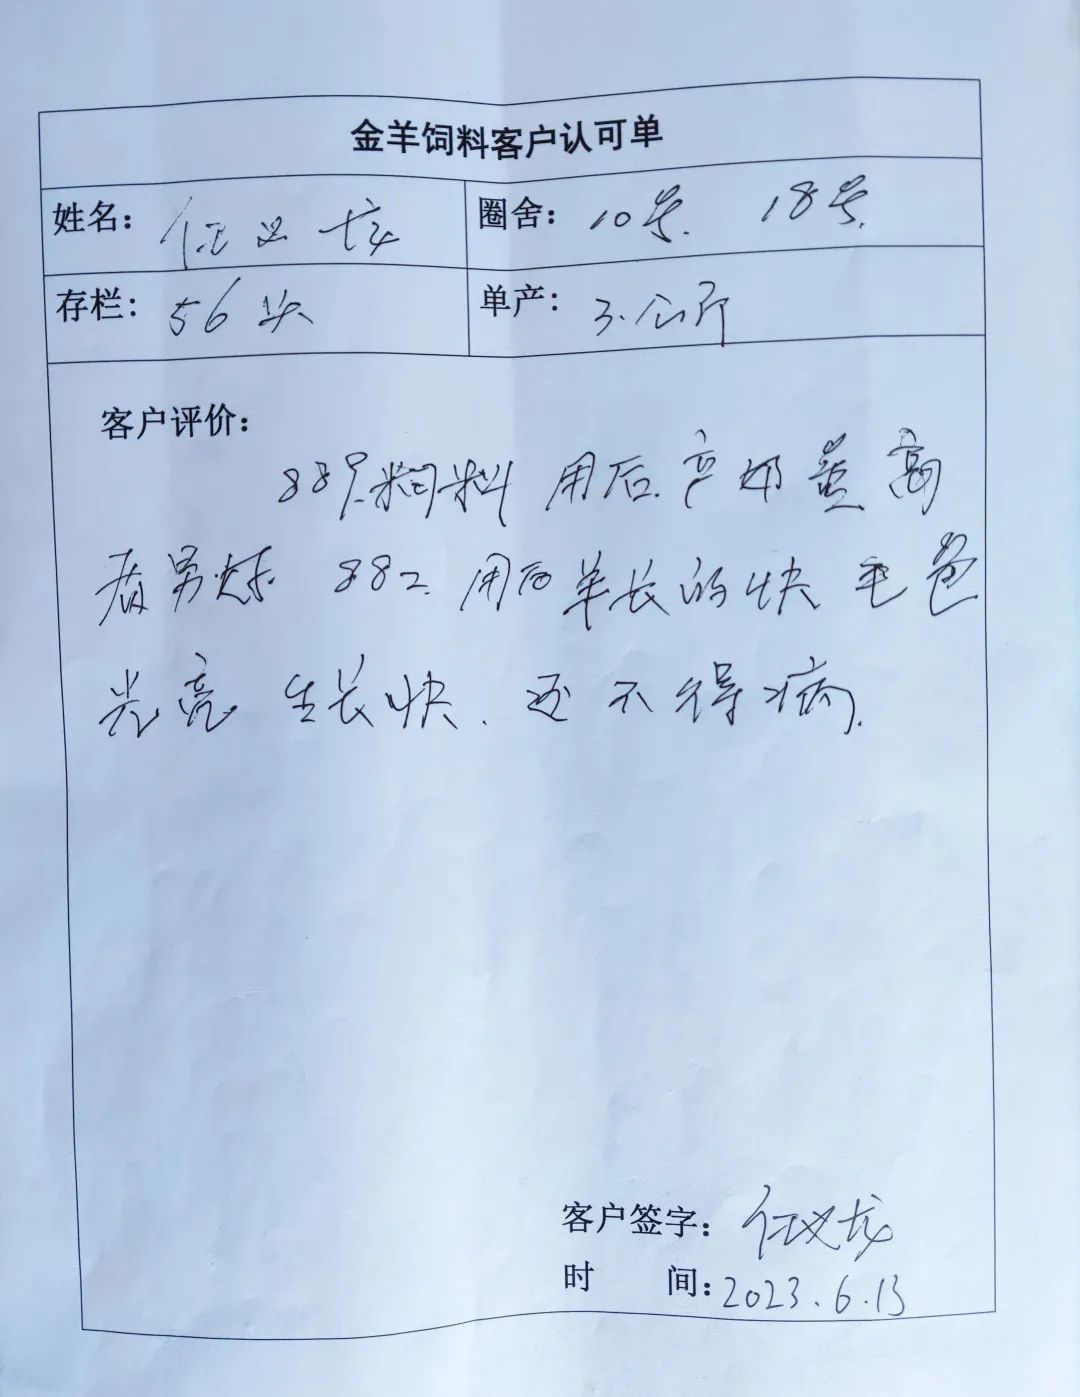 金羊饲料客户认可单
姓名: 任义龙 圈舍: 10号. 18号.
存栏: 56头 单产: 3.公斤
客户评价:
饲料 用后.产奶量高
882.用后羊长的快 毛色
光亮 生长快.还不得病.
客户签字: 任义龙
时 间: 2023.6.13